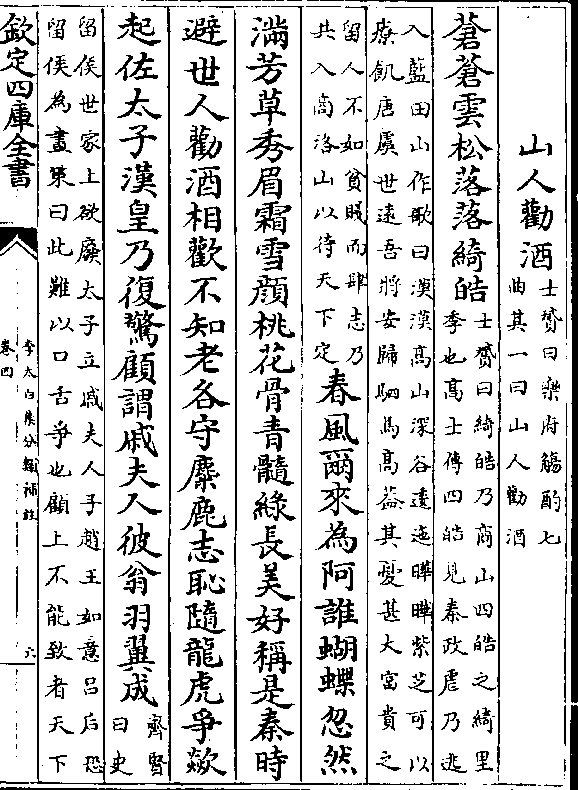 山人勸酒士贇曰樂府觴酌七
曲其一曰山人勸酒
蒼蒼雲松落落綺皓士贇曰綺皓乃商山四皓之綺里
季也高士傳四皓見秦政虐乃逃
入藍田山作歌曰漠漠高山深谷逶迤曄曄紫芝可以
療飢唐虞世遠吾將安歸駟馬高蓋其憂甚大富貴之
留人不如貧賤而肆志乃
共入商洛山以待天下定春風爾來為阿誰蝴蝶忽然
滿芳草秀眉霜雪顔桃花骨青髓綠長美好稱是秦時
避世人勸酒相歡不知老各守麋鹿志恥隨龍虎爭歘
起佐太子漢皇乃復驚顧謂戚夫人彼翁羽翼成齊賢
曰史
留侯世家上欲廢太子立戚夫人子趙王如意吕后恐
留侯為畫策曰此難以口舌爭也顧上不能致者天下
欽定四庫全書
李太白集分類補註
卷四
六